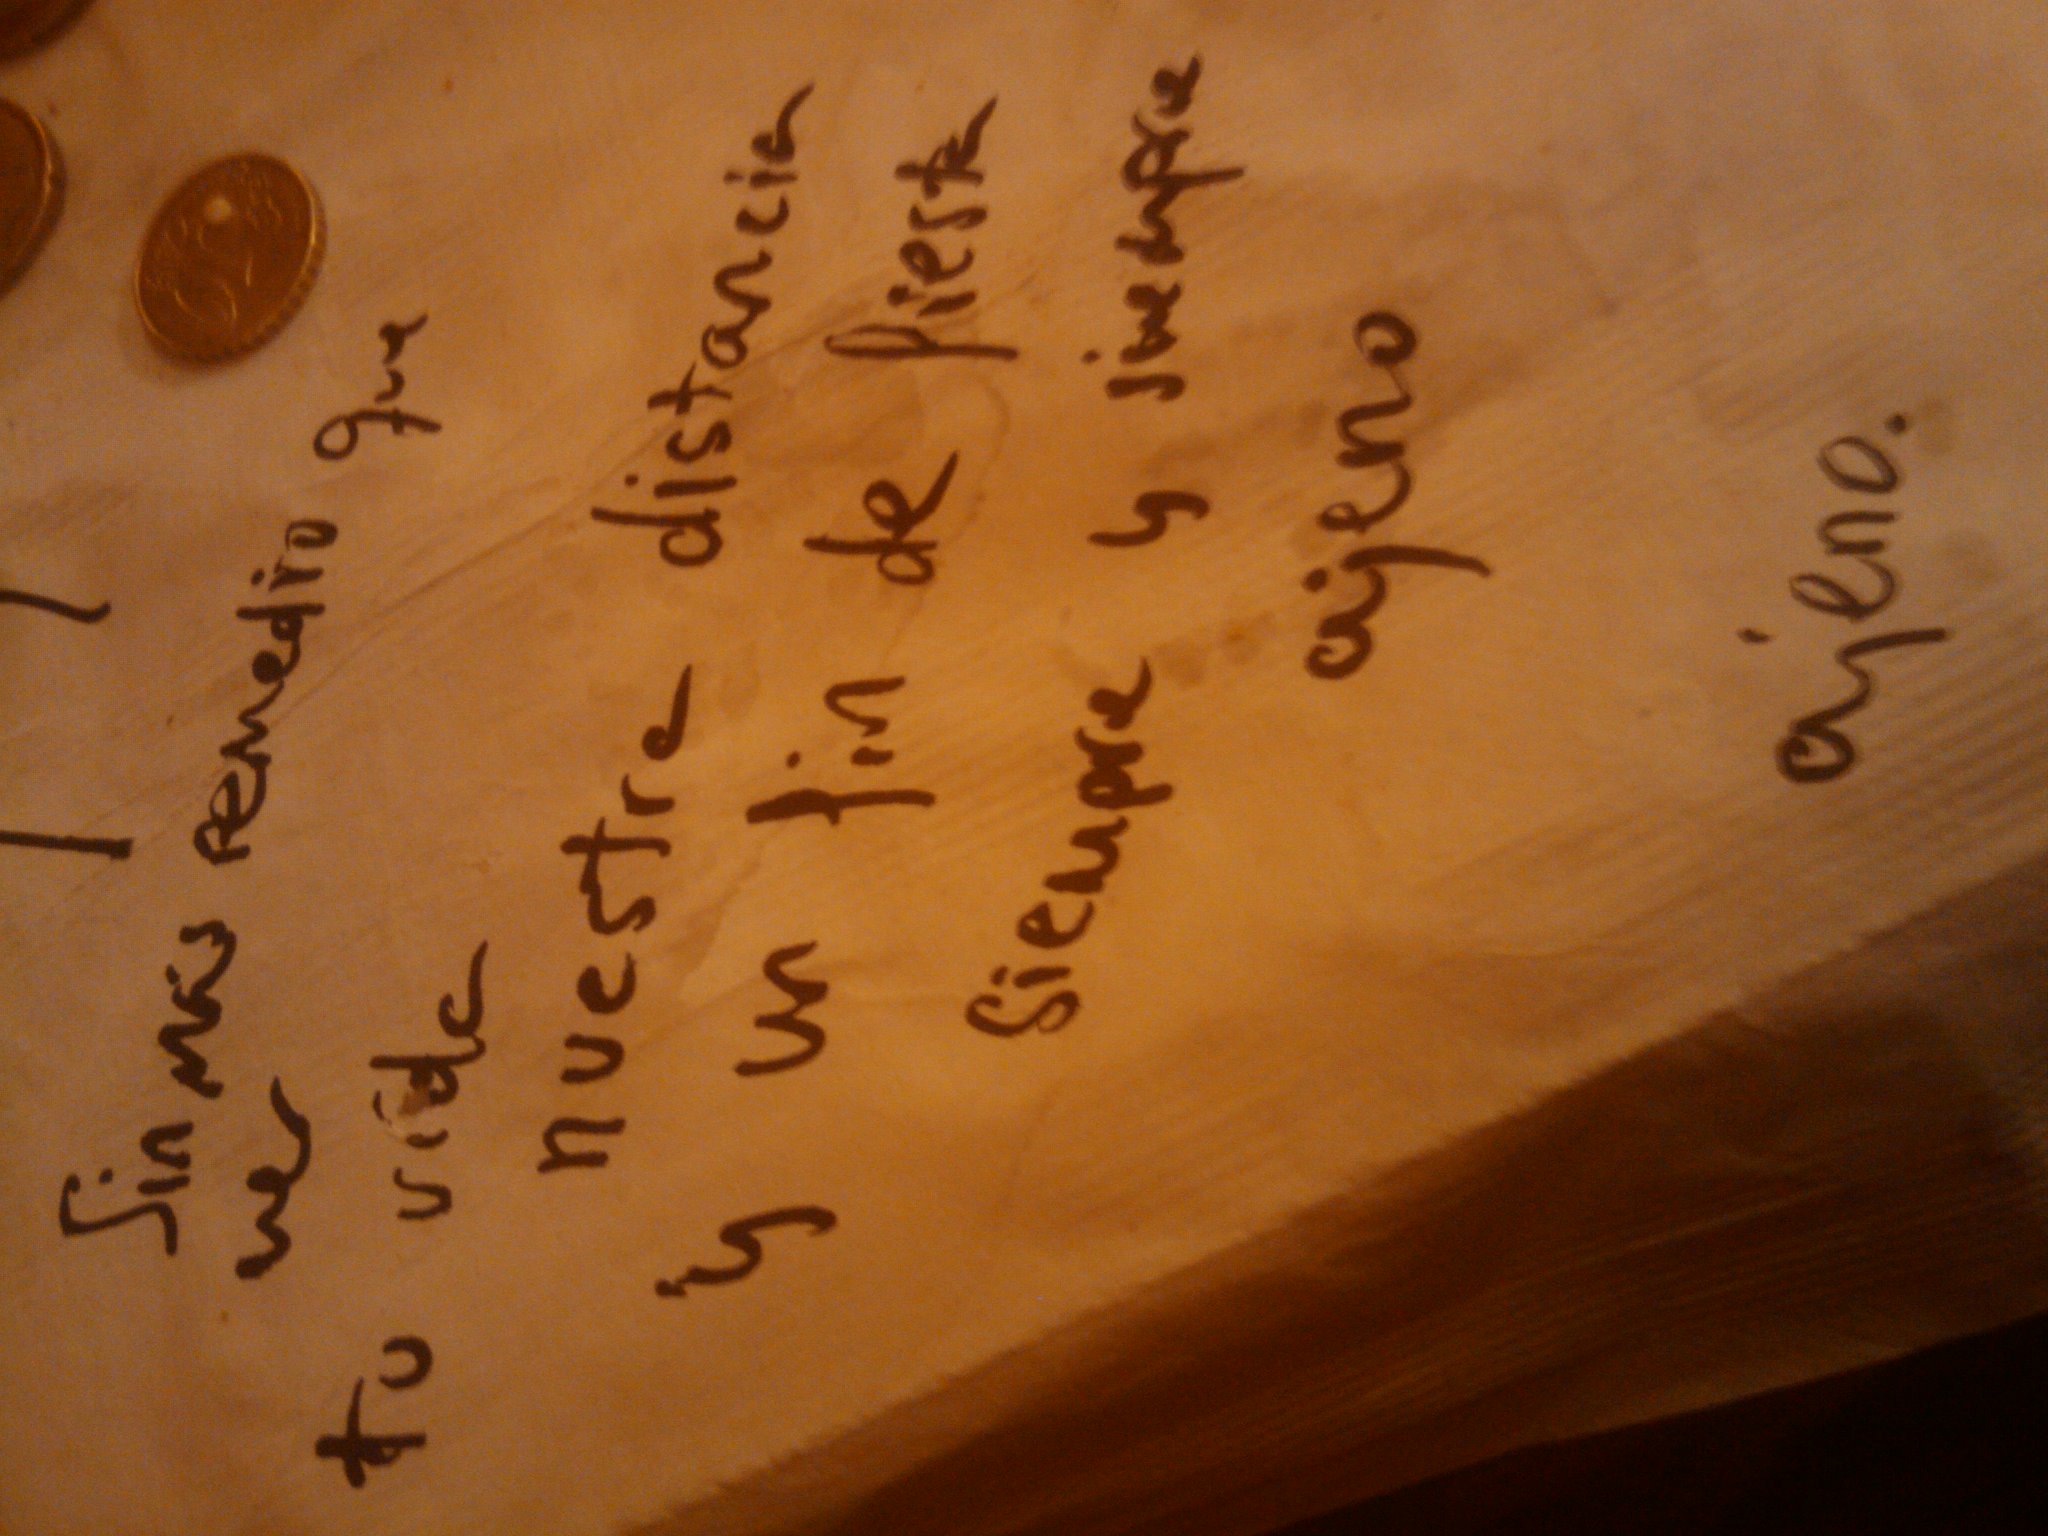 Sin más remedio que
ver
tu vida
nuestra distancia
y un fin de fiesta
Siempre y siempre
ajeno
ajeno.